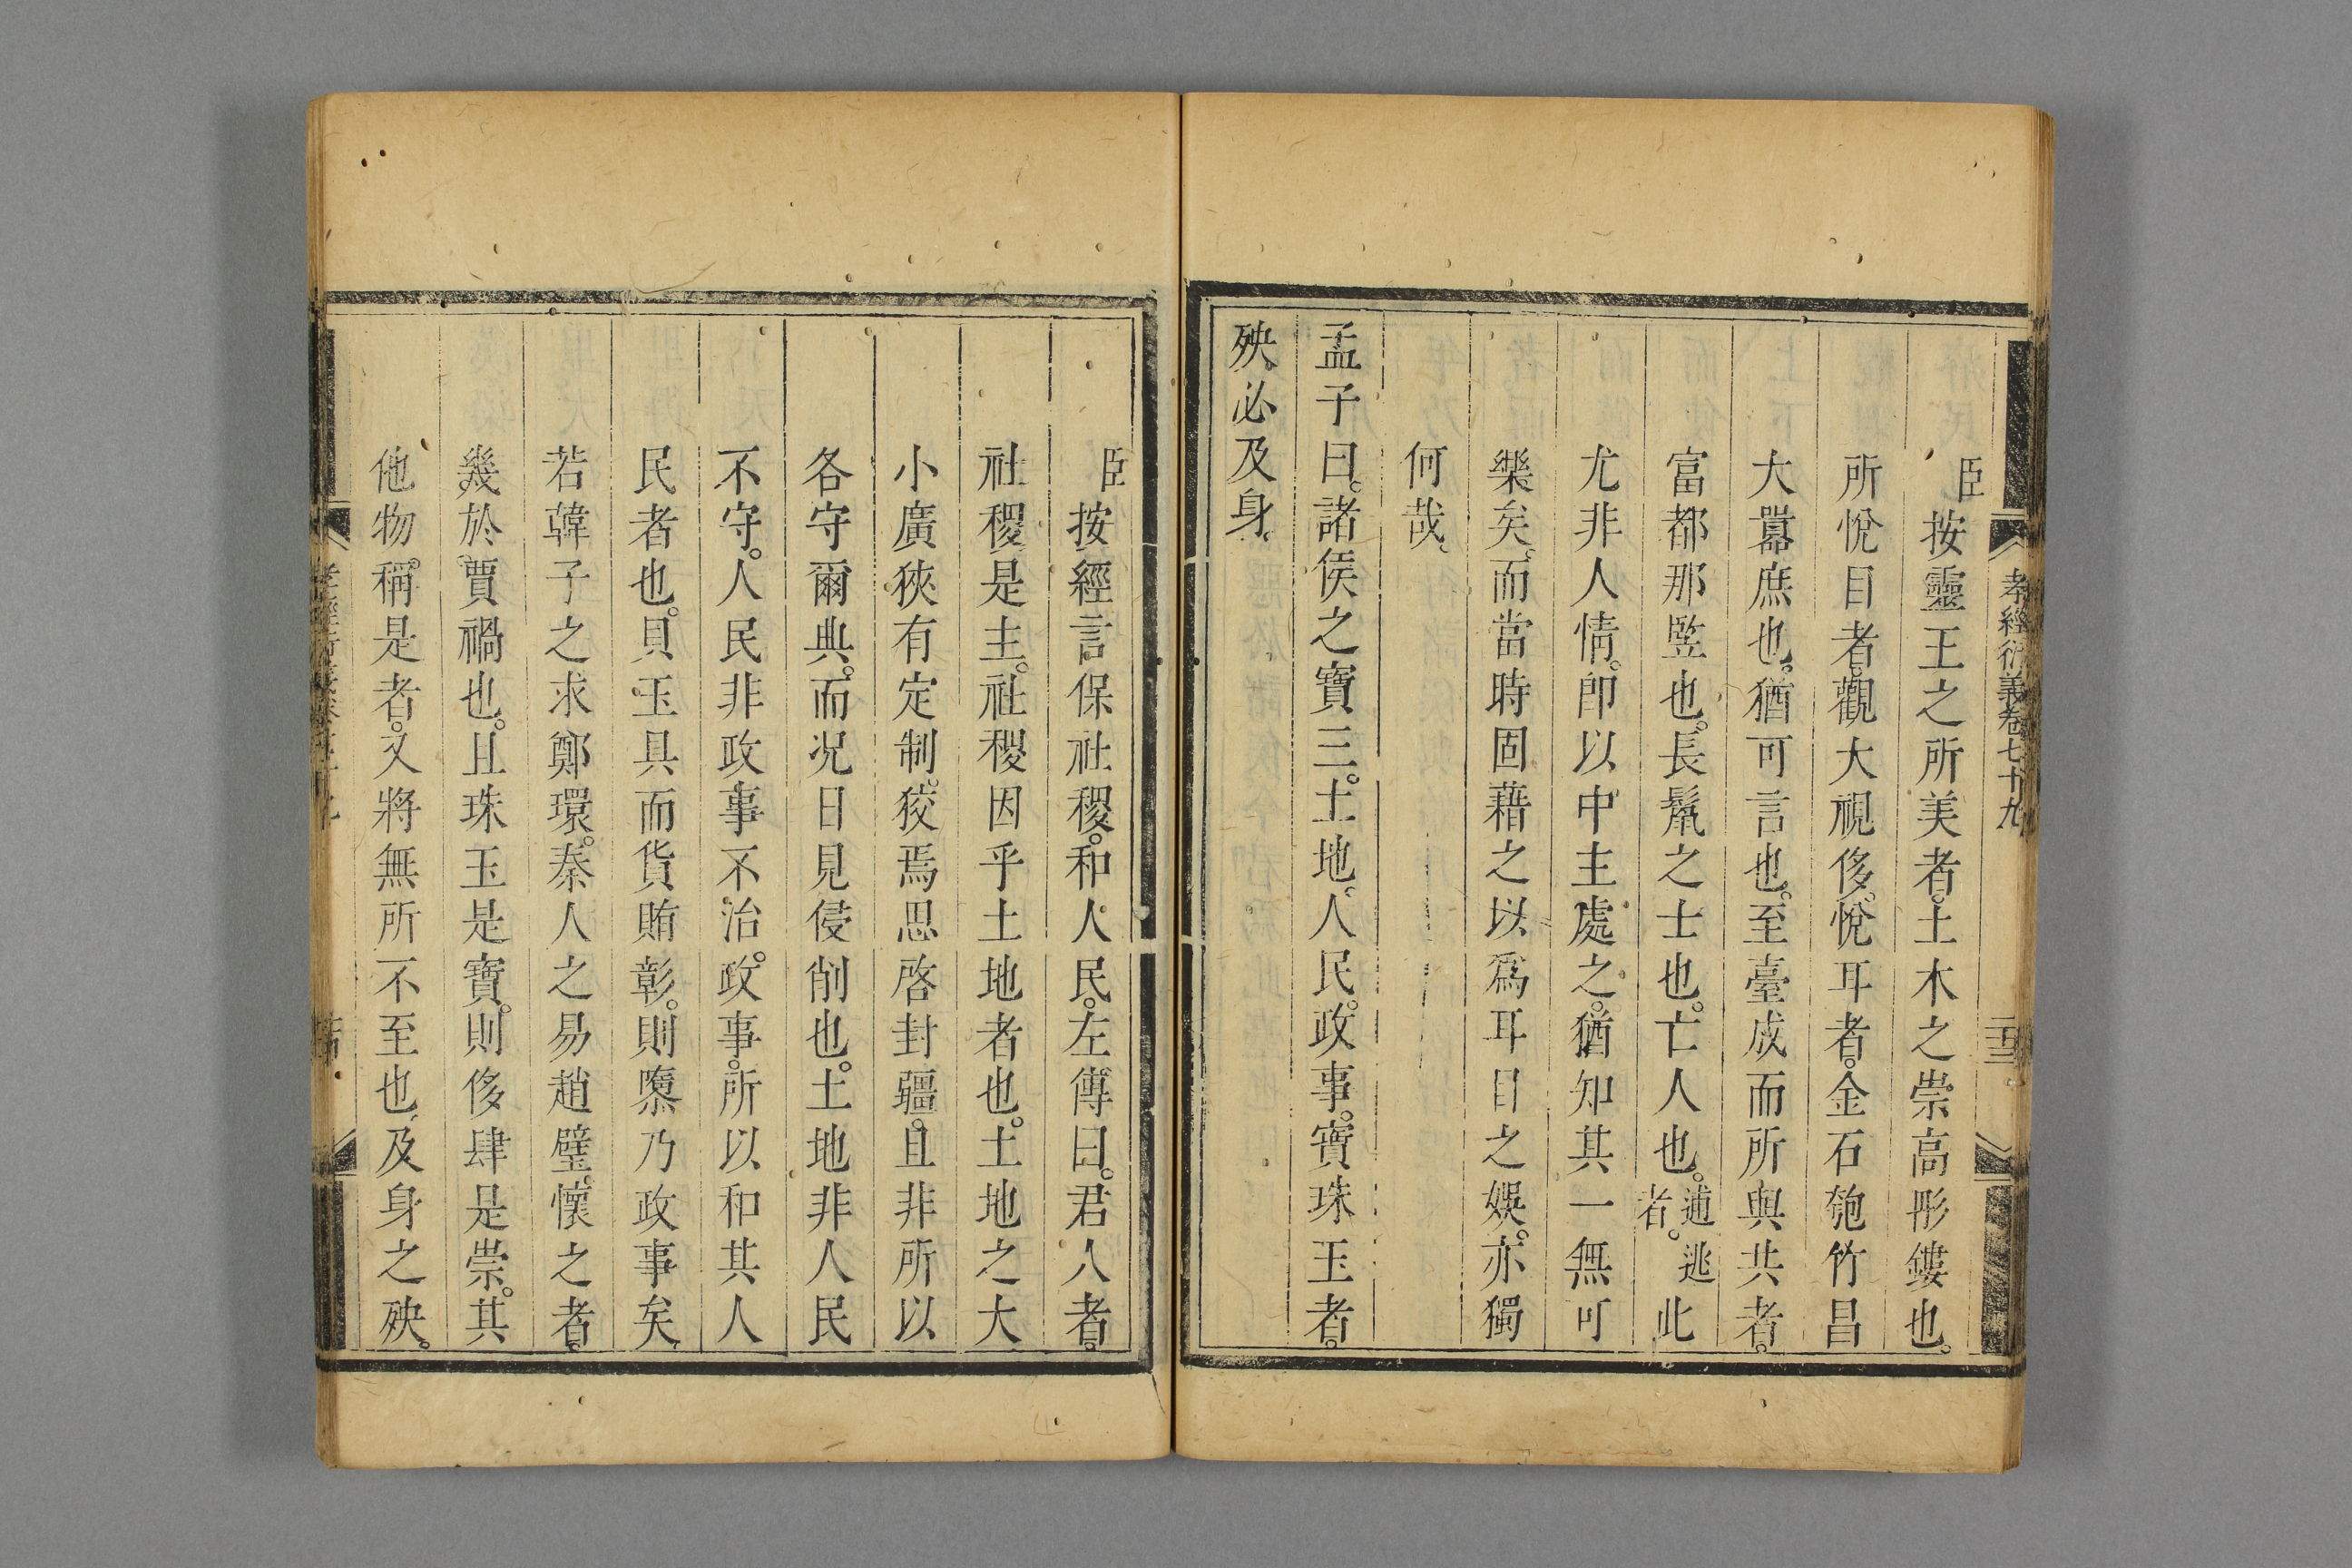 孝經衍義卷七十九
二十三
臣按靈王之所美者。土木之崇高彤鏤也。
所悅目者。觀大視侈。悅耳者。金石匏竹昌
大囂庶也。猶可言也。至臺成而所與共者。
富都那豎也。長鬣之士也。亡人也。逋逃者。此
尤非人情。即以中主處之。猶知其一無可
樂矣。而當時固藉之以爲耳目之娛。亦獨
何哉。
孟子曰。諸侯之寶三。土地。人民。政事。寶珠玉者。
殃必及身。
臣按經言保社稷。和人民。左傳曰。君人者。
社稷是主。社稷因乎土地者也。土地之大
小廣狹有定制。狡焉思啓封疆。且非所以
各守爾典。而况日見侵削也。土地非人民
不守。人民非政事不治。政事。所以和其人
民者也。貝玉具而貨賄彰。則隳乃政事矣
若韓子之求鄭環。秦人之易趙璧。懷之者。
幾於賈禍也。且珠玉是寶。則侈肆是崇。其
他物。稱是者。又將無所不至也。及身之殃。